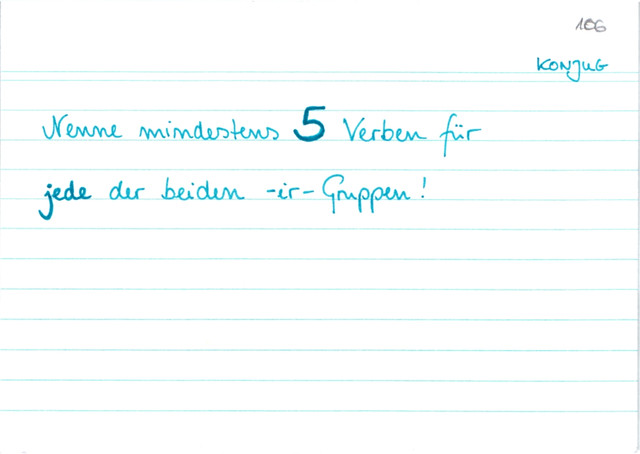 106
KONJUG
Nenne mindestens 5 Verben für
jede der beiden -ir-Gruppen!